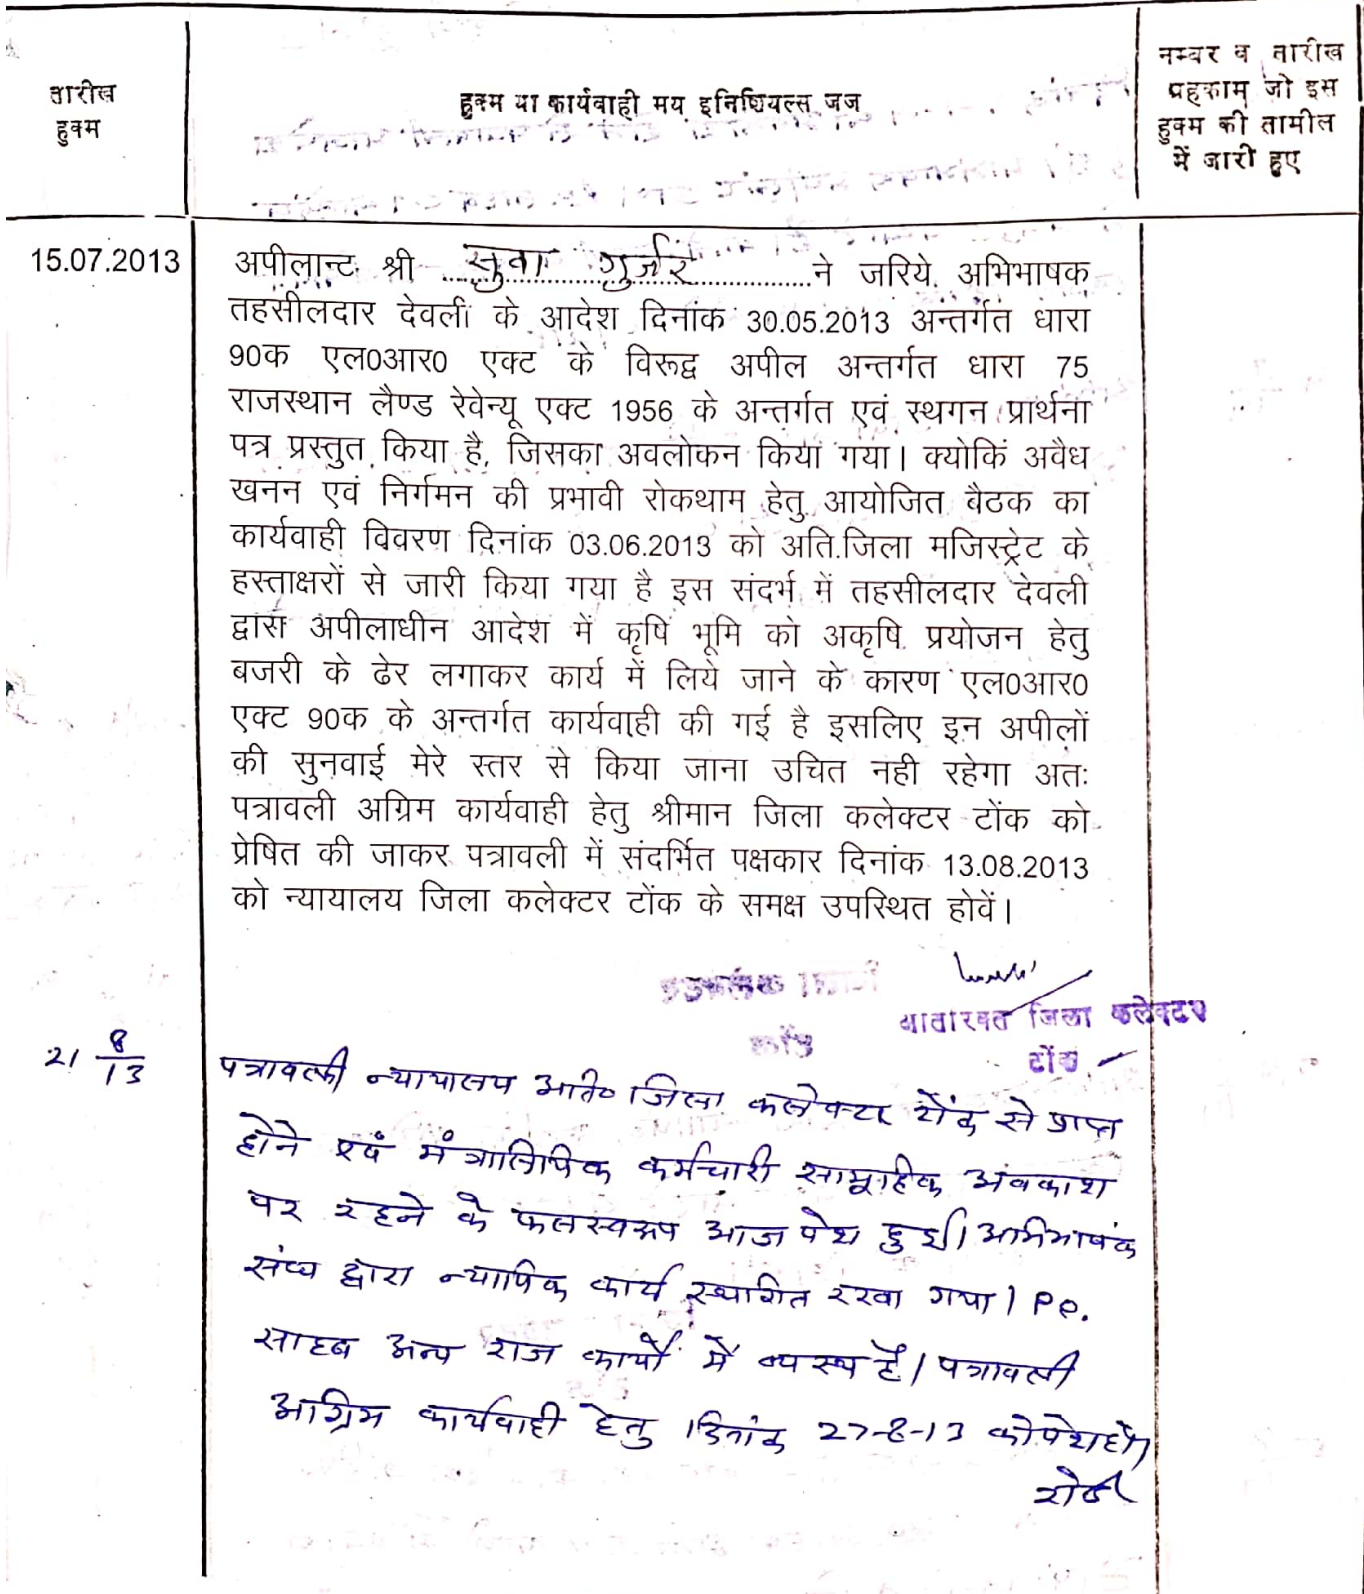 तारीख
हुक्म
हुक्म या कार्यवाही मय इनिशियल्स जज
नम्बर व तारीख
अहकाम जो इस
हुक्म की तामील
में जारी हुए
15.07.2013
अपीलान्ट श्री सुवा गुर्जर ने जरिये अभिभाषक
तहसीलदार देवली के आदेश दिनांक 30.05.2013 अन्तर्गत धारा
90क एल0आर0 एक्ट के विरूद्व अपील अन्तर्गत धारा 75
राजस्थान लैण्ड रेवेन्यू एक्ट 1956 के अन्तर्गत एवं स्थगन प्रार्थना
पत्र प्रस्तुत किया है, जिसका अवलोकन किया गया। क्योकिं अवैध
खनन एवं निर्गमन की प्रभावी रोकथाम हेतु आयोजित बैठक का
कार्यवाही विवरण दिनांक 03.06.2013 को अति.जिला मजिस्ट्रेट के
हस्ताक्षरों से जारी किया गया है इस संदर्भ में तहसीलदार देवली
द्वारा अपीलाधीन आदेश में कृषि भूमि को अकृषि प्रयोजन हेतु
बजरी के ढेर लगाकर कार्य में लिये जाने के कारण एल0आर0
एक्ट 90क के अन्तर्गत कार्यवाही की गई है इसलिए इन अपीलों
की सुनवाई मेरे स्तर से किया जाना उचित नही रहेगा अतः
पत्रावली अग्रिम कार्यवाही हेतु श्रीमान जिला कलेक्टर टोंक को
प्रेषित की जाकर पत्रावली में संदर्भित पक्षकार दिनांक 13.08.2013
को न्यायालय जिला कलेक्टर टोंक के समक्ष उपस्थित होवें।
जिला कलेक्टर
टोंक
21 8/13
पत्रावली न्यायालय अति० जिला कलेक्टर टोंक से प्राप्त
होने एवं मंत्रालियिक कर्मचारी सामूहिक अवकाश
पर रहने के फलस्वरूप आज पेश हुई। अभिभाषक
संघ द्वारा न्यायिक कार्य स्थगित रखा गया। P.O.
साहब अन्य राज कार्यों में व्यस्थ हैं। पत्रावली
अग्रिम कार्यवाही हेतु दिनांक 27-8-13 को पेश हो।